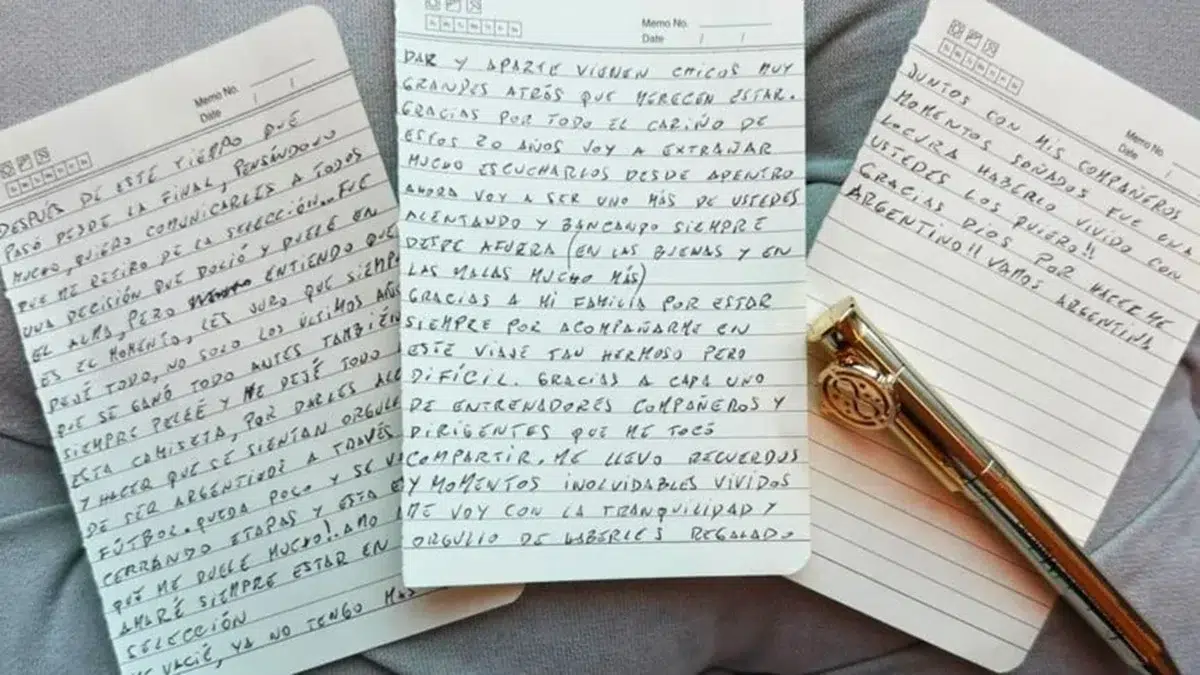 Memo No.
Date / /
DESPUÉS DE ESTE TIEMPO QUE
PASÓ DESDE LA FINAL, PENSÁNDOLO
MUCHO, QUIERO COMUNICARLES A TODOS
QUE ME RETIRO DE LA SELECCIÓN... FUE
UNA DECISIÓN QUE DOLIÓ Y DUELE EN
EL ALMA, PERO ENTIENDO QUE
ES EL MOMENTO, LES JURO QUE SIEMPRE
DEJÉ TODO, NO SOLO LOS ÚLTIMOS AÑOS
QUE SE GANÓ TODO ANTES TAMBIÉN
SIEMPRE PELEÉ Y ME DEJÉ TODO
ESTA CAMISETA, POR DARLES
Y HACER QUE SE SIENTAN
DE SER ARGENTINOS A TRAVÉS
FÚTBOL. QUEDA POCO Y SE
CERRANDO ETAPAS Y ESTA
QUE ME DUELE MUCHO!. AMO
AMARÉ SIEMPRE ESTAR EN
SELECCIÓN
ME VACIÉ, YA NO TENGO MÁS
Memo No.
Date / /
DAR Y APARTE VIENEN CHICOS MUY
GRANDES ATRÁS QUE MERECEN ESTAR.
GRACIAS POR TODO EL CARIÑO DE
ESTOS 20 AÑOS VOY A EXTRAÑAR
MUCHO ESCUCHARLOS DESDE ADENTRO
AHORA VOY A SER UNO MÁS DE USTEDES
ALENTANDO Y BANCANDO SIEMPRE
DESDE AFUERA (EN LAS BUENAS Y EN
LAS MALAS MUCHO MÁS)
GRACIAS A MI FAMILIA POR ESTAR
SIEMPRE POR ACOMPAÑARME EN
ESTE VIAJE TAN HERMOSO PERO
DIFÍCIL. GRACIAS A CADA UNO
DE ENTRENADORES COMPAÑEROS Y
DIRIGENTES QUE ME TOCÓ
COMPARTIR. ME LLEVO RECUERDOS
Y MOMENTOS INOLVIDABLES VIVIDOS
ME VOY CON LA TRANQUILIDAD Y
ORGULLO DE HABERLES REGALADO
Memo No.
Date / /
JUNTOS CON MIS COMPAÑEROS
MOMENTOS SOÑADOS FUE UNA
LOCURA HABERLO VIVIDO CON
USTEDES LOS QUIERO!!
GRACIAS DIOS POR HACERME
ARGENTINO!! VAMOS ARGENTINA